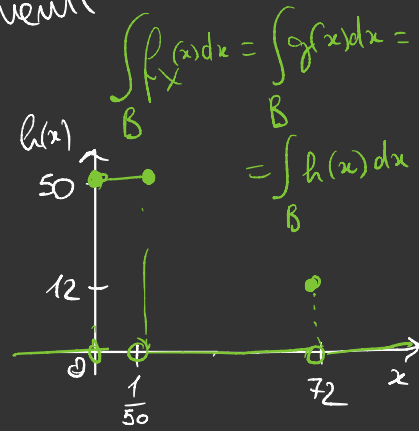 ∫_B f_X(x)dx = ∫_B g(x)dx =
= ∫_B h(x)dx
h(x)
50
12
0
1/50
72
x